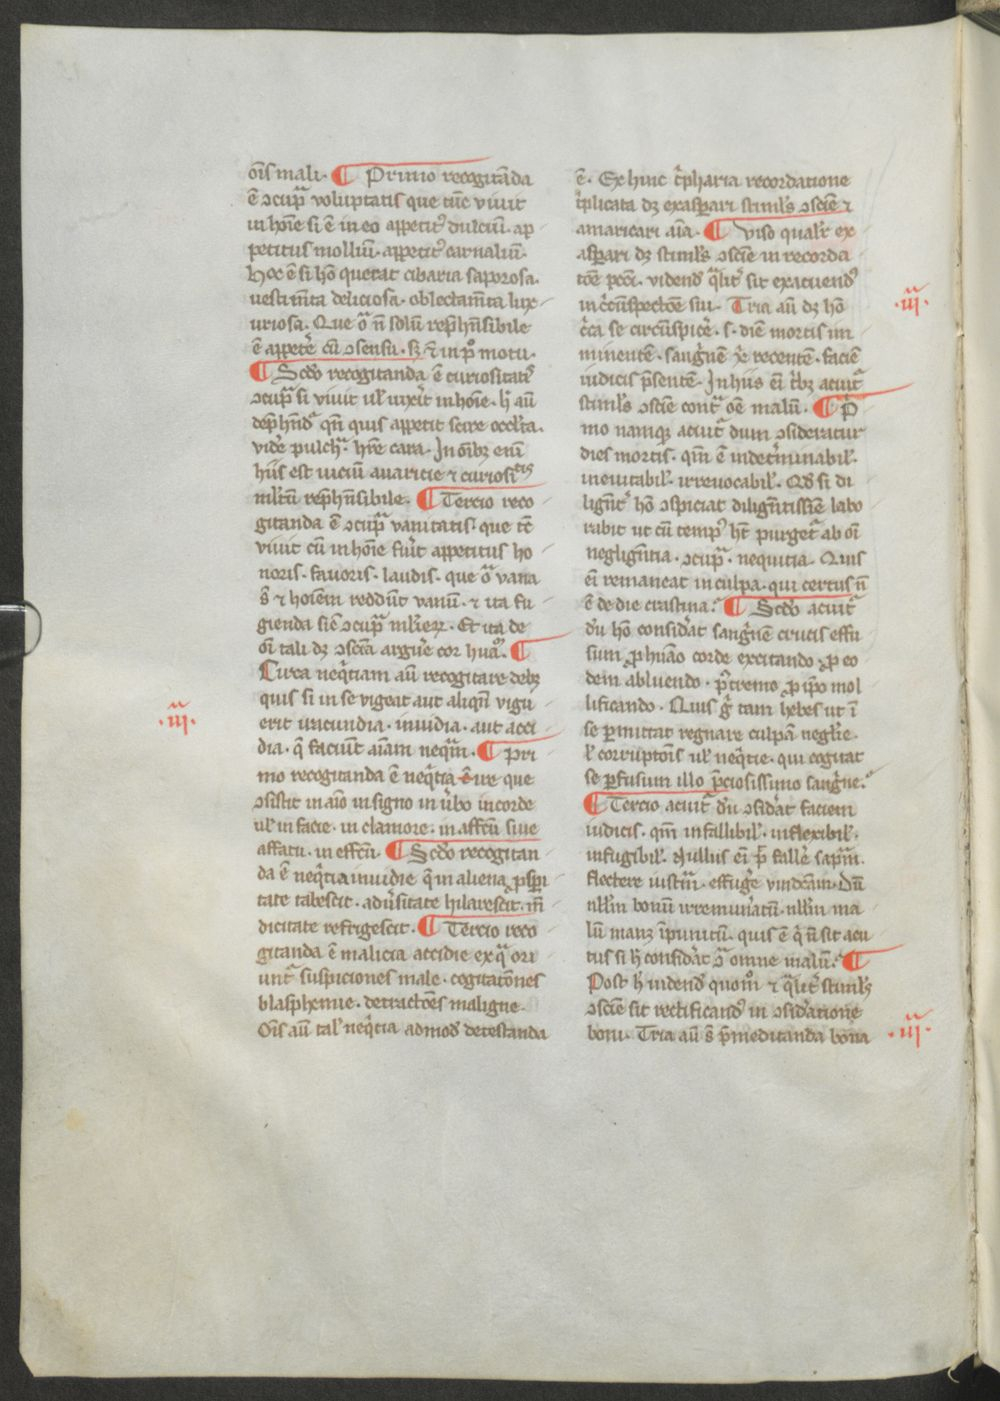 oīs mali. ¶ Primo recogitāda
ē ꝯcupͣ voluptatis que tūc viuit
in hoīe si ē in eo appetitꝰ dulciū. ap
petitus molliū. appetitꝰ carnaliū.
Hoc ē si hō querat cibaria saporosa.
vestimēta deliciosa. oblectamēta lux
uriosa. Que oͣ n̄ solū rep̄hn̄sibile
ē appetẽ cū ꝯsensu. sꝫ ⁊ in pͦ motu.
¶ Scd̓o recogitanda ē curiositatꝭ
ꝯcupͣ si viuit ul̓ uixit in hoīe. h̓ aū
dep̄hn̄dͬ qn̄ quis appetit scire occl̓ta.
vid̓e pulchͣ. hr̄e cara. In oībꝫ enī
hiis est uiciū auaricie ⁊ curiositatis
ml̓tū rep̄hn̄sibile. ¶ Tercio reco
gitanda ē ꝯcupͣ vanitatis. que tc̄
viuit cū in hoīe fūit appetitus ho
noris. fauoris. laudis. que oͣ vana
s̄ ⁊ hoīem reddūt vanū. ⁊ ita fu
gienda sic̄ ꝯcupͣ ml̓ieꝝ. Et ita de
oī tali dꝫ ꝯsc̄ia argu̓e cor huāͦ. ¶
Circa neqͥtiam aū recogitare debꝫ
quis si in se vigeat aut aliqn̄ vigu
erit iracundia. inuidia. aut acci
.iij.
dia. q̄ faciūt aīam neqͣm. ¶ Pri
mo recogitanda ē neqͥcia ire que
ꝯsistit in aīo in signo in v̓bo in corde
ul̓ in facie. in clamore. in affc̄u siue
affatu. in effc̄u. ¶ Scd̓o recogitan
da ē neqͥtia inuidie q̄ in aliena ꝓspi
tate tabescit. adu̓sitate hilarescit. in̄
dicitate refrigescit. ¶ Tercio reco
gitanda ē malicia accidie ex qͣ ori
unt᷑ suspiciones male. cogitatōnes
blasphemie. detractōes maligne.
Oīs aū tal̓ neqͥtia admodꝰ detestanda
ē. Ex hinc tͥpharia recordatione
tͥplicata dꝫ exasꝑari stimlꝰs ꝯscīe ⁊
amaricari aīa. ¶ Viso qual̓r ex
asꝑari dꝫ stimlꝰs ꝯscīe in recorda
tōe pcc̄i. videndꝰ qͣlit᷑ sit exacuendꝰ
in cͥcūspectōe sui. Tria aū dꝫ hō
.iij.
cͥca se circūspicẽ. s. diē mortis im
minentē. sangͥnē xͥ recentē. faciē
iudicis p̄sentē. In hiis eī tͥbꝫ acuit᷑
stimlꝰs ꝯscīe contͣ oē malū. ¶ Pͥ
mo namqꝫ acuit᷑ dum ꝯsiderat᷑ur
dies mortis. qm̄ ē indet̓minabil̓.
ineuitabil̓. irreuocabil̓. Qd̓ si di
ligēt᷑ hō ꝯspiciat diligētissīe labo
rabit ut cū tempꝰ ht̄ purget᷑ ab oī
negligētia. ꝯcupͣ. nequitia. Quis
eī remaneat in culpa. qui certus n̄
ē de die crastina. ¶ Scd̓o acuit᷑
dū hō considat̓ sangͥnē crucis effu
sum ꝓ huāo corde excitando ꝓ eo
dem abluendo. pͦtremo ꝓ ip̄o mol
lificando. Quis gͦ tam hebes ut ī
se ꝑmittat regnare culpā neglīe.
l̓ corruptōis ul̓ neqͥtie. qui cogitat
se ꝑfusum illo p̄ciosissimo sangͥne.
¶ Tercio acuit᷑ dū ꝯsidat̓ faciem
iudicis. qm̄ infallibil̓. inflexibil̓.
infugibil̓. Nullus eī pt̄ falle̓ sapn̄m.
flectere iustn̄. effuge̓ vindcām. Dū
nll̓m bonū irremuneratū. nll̓m ma
lū manꝫ īpunitū. quis ē qͥ n̄ sit acu
tus si h̓ considat̓ ꝯͣ omne malū. ¶
Post h̓ uidendꝰ quomͦ ⁊ qͣlit᷑ stimlꝰs
ꝯscīe sit rectificandꝰ in ꝯsid̓atione
boni. Tria aū s̄ p̄meditanda bona
.iij.